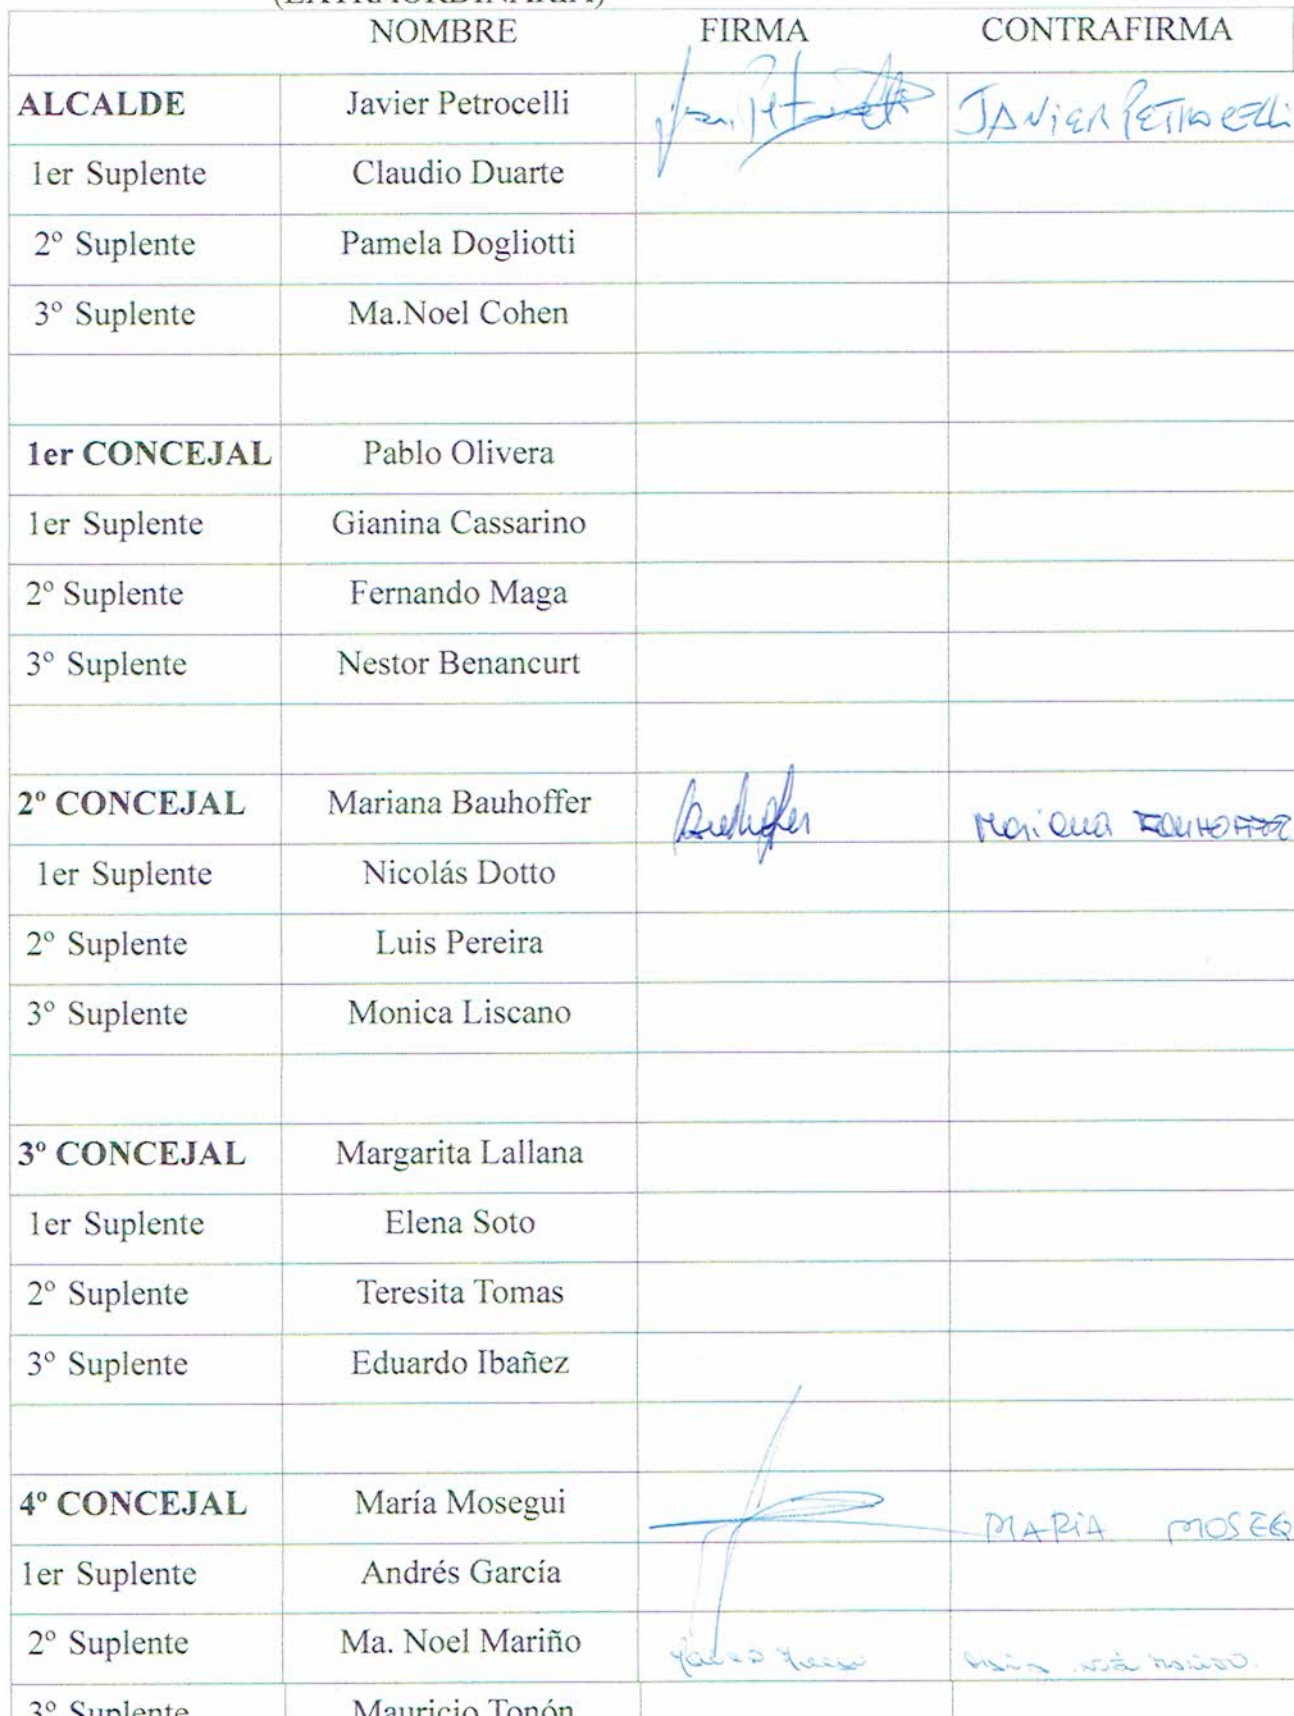 (EXTRAORDINARIA)
NOMBRE FIRMA CONTRAFIRMA
ALCALDE Javier Petrocelli JAVIER PETROCELLI
1er Suplente Claudio Duarte
2º Suplente Pamela Dogliotti
3º Suplente Ma.Noel Cohen
1er CONCEJAL Pablo Olivera
1er Suplente Gianina Cassarino
2º Suplente Fernando Maga
3º Suplente Nestor Benancurt
2º CONCEJAL Mariana Bauhoffer Mariana BAUHOFFER
1er Suplente Nicolás Dotto
2º Suplente Luis Pereira
3º Suplente Monica Liscano
3º CONCEJAL Margarita Lallana
1er Suplente Elena Soto
2º Suplente Teresita Tomas
3º Suplente Eduardo Ibañez
4º CONCEJAL María Mosegui MARIA MOSEG
1er Suplente Andrés García
2º Suplente Ma. Noel Mariño
3º Suplente Mauricio Tonón